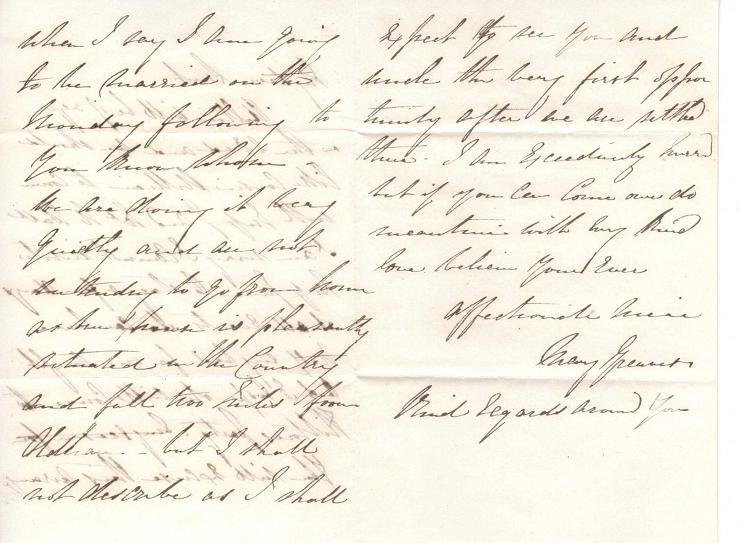 when I say I am going
to be married on the
Monday following to
You know whom -
We are doing it very
Quietly and are not
intending to go from home
as our house is pleasantly
situated in the Country
and full two miles from
Oldham - but I shall
not describe as I shall
expect to see you and
uncle the very first oppor
tunity after we are settled
there. I am Exceedingly hurrd
but if you can Come over do
meantime with my Kind
love believe Your Ever
affectionate niece
Mary
Kind Regards around You